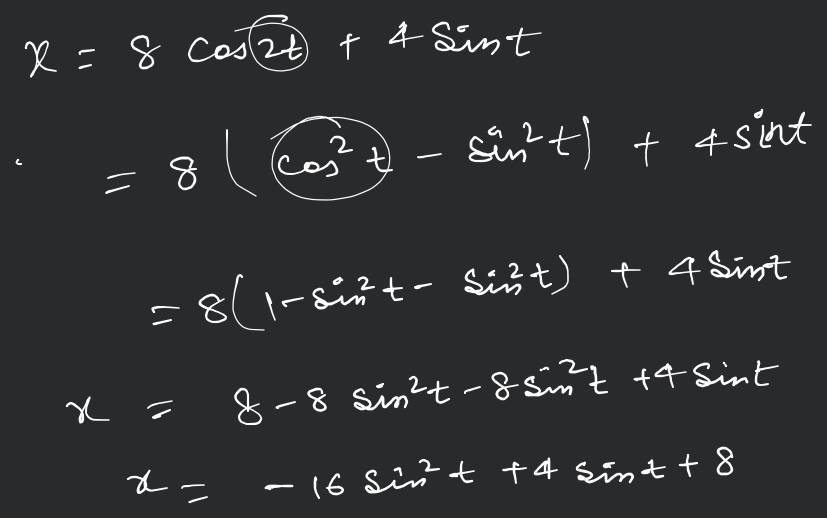 x = 8 cos 2t + 4 sin t
= 8 (cos² t - sin² t) + 4 sin t
= 8(1 - sin² t - sin² t) + 4 sin t
x = 8 - 8 sin² t - 8 sin² t + 4 sin t
x = -16 sin² t + 4 sin t + 8